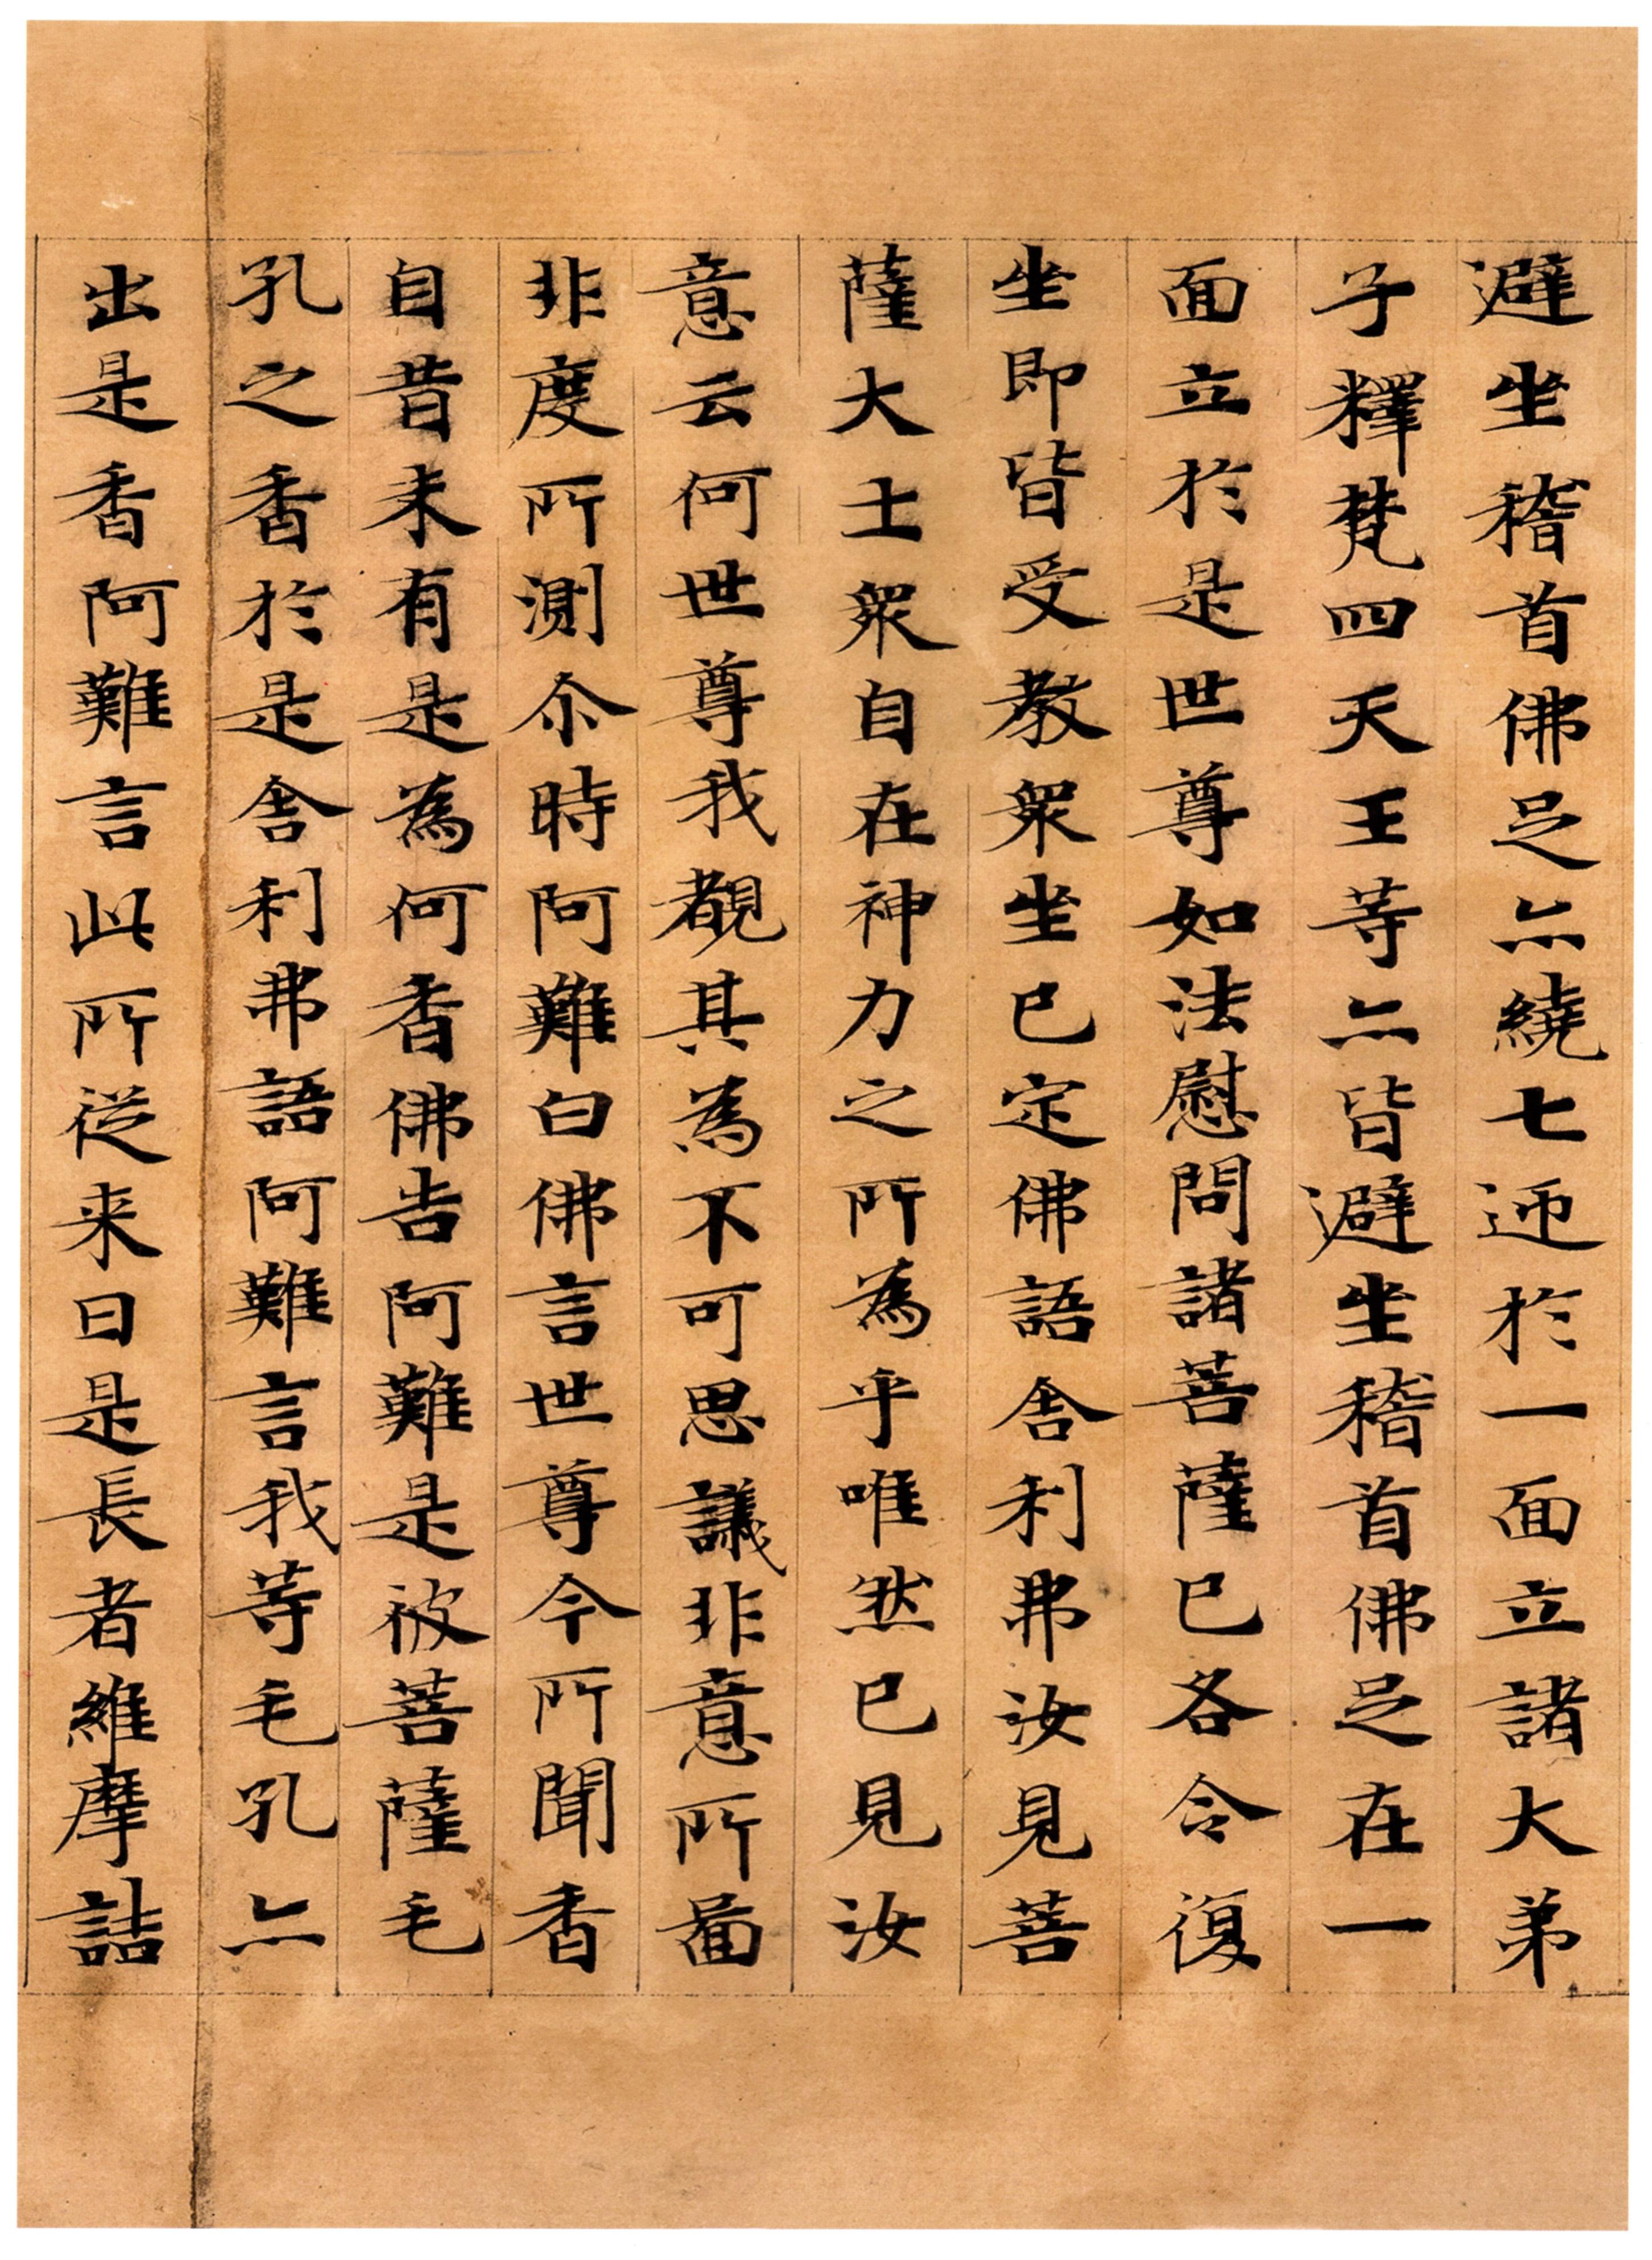 避坐稽首佛足亦繞七迊於一面立諸大弟
子釋梵四天王等亦皆避坐稽首佛足在一
面立於是世尊如法慰問諸菩薩已各令復
坐即皆受教衆坐已定佛語舍利弗汝見菩
薩大士衆自在神力之所為乎唯然已見汝
意云何世尊我覩其為不可思議非意所啚
非度所測尒時阿難白佛言世尊今所聞香
自昔未有是為何香佛告阿難是彼菩薩毛
孔之香於是舍利弗語阿難言我等毛孔亦
出是香阿難言此所從来曰是長者維摩詰